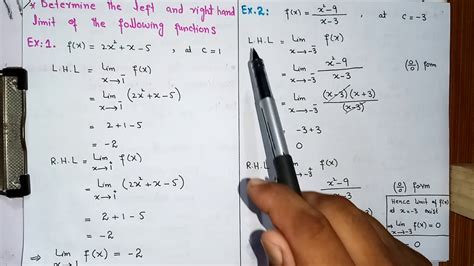 * Determine the left and right hand
limit of the following functions
Ex:1. f(x) = 2x² + x - 5, at c = 1
L.H.L = Lim f(x)
x→1⁻
= Lim (2x² + x - 5)
x→1⁻
= 2 + 1 - 5
= -2
R.H.L = Lim f(x)
x→1
= Lim (2x² + x - 5)
x→1
= 2 + 1 - 5
= -2
⇒ Lim f(x) = -2
x→1
Ex:2. f(x) = x² - 9 / x - 3, at c = -3
L.H.L = Lim f(x)
x→-3⁻
= Lim x² - 9 / x - 3 (0/0) form
x→-3⁻
= Lim (x - 3)(x + 3) / (x - 3)
x→-3⁻
= -3 + 3
0
R.H.L = Lim f(x)
x→-3
= Lim x² - 9 / x - 3 (0/0) form
x→-3
Hence limit of f(x)
at x = -3 exist
Lim f(x) = 0
x→-3
0